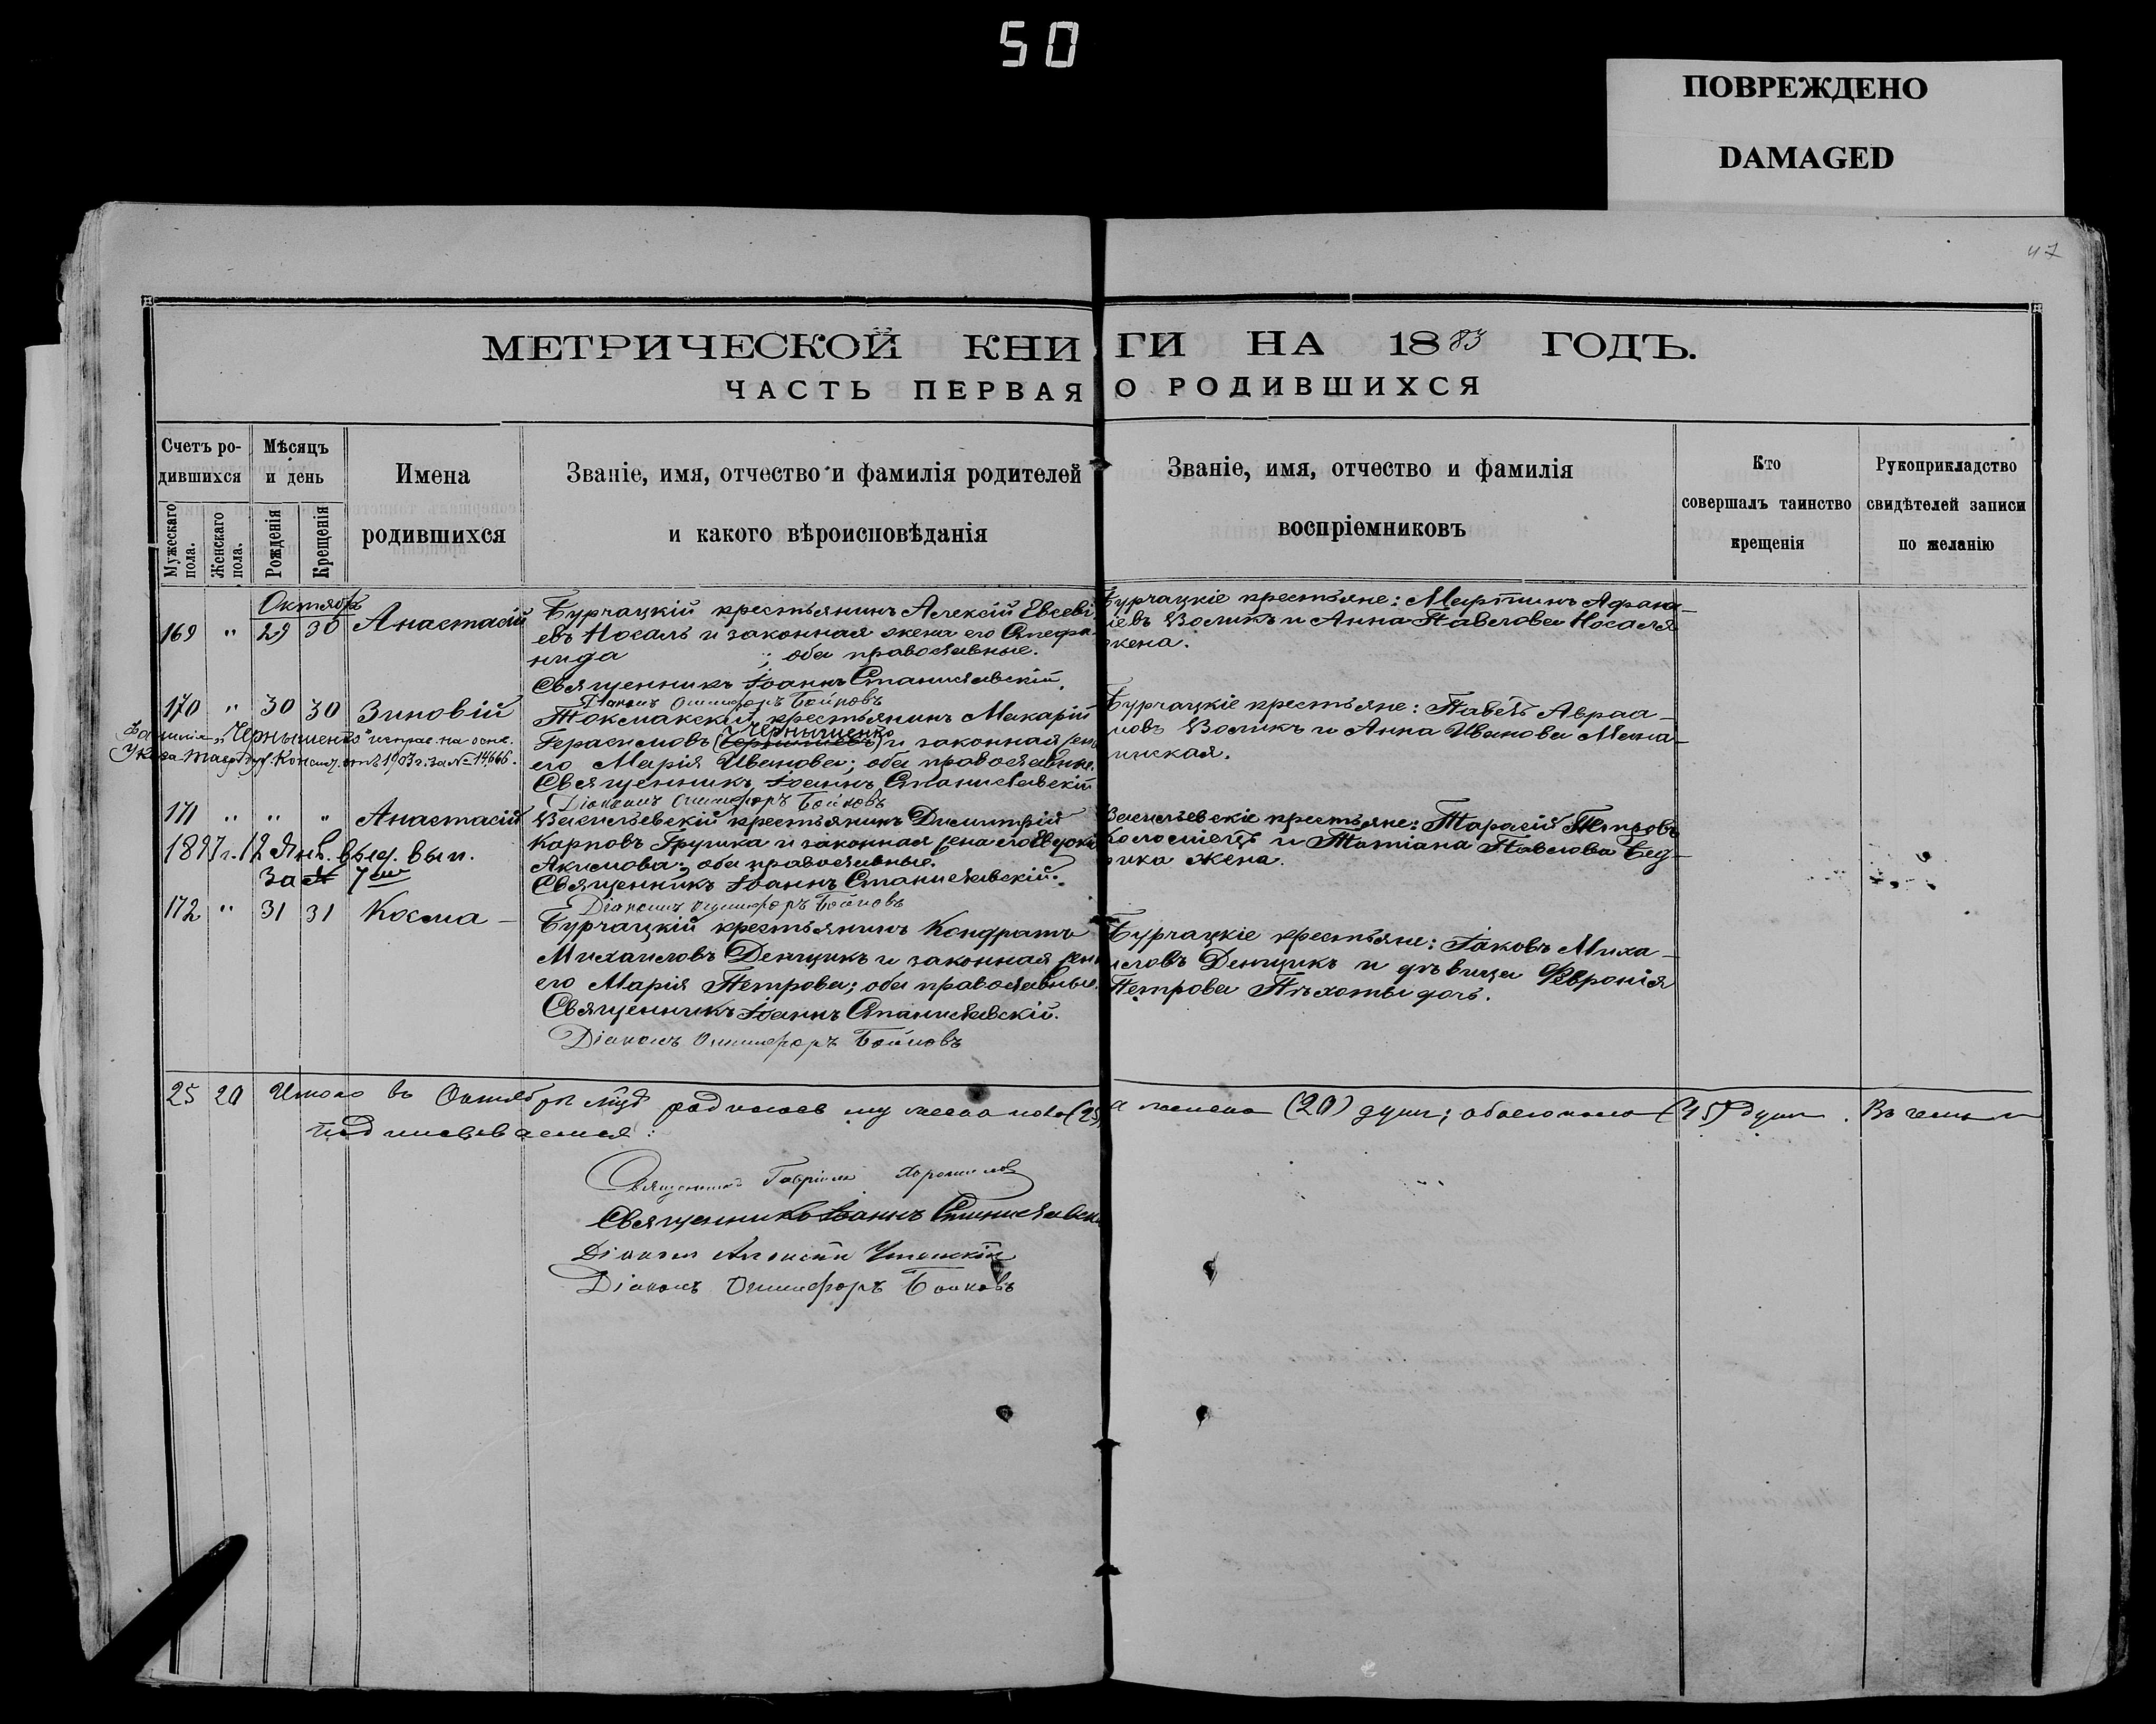 50
ПОВРЕЖДЕНО
DAMAGED
47
МЕТРИЧЕСКОЙ КНИГИ НА 1883 ГОДЪ.
ЧАСТЬ ПЕРВАЯ О РОДИВШИХСЯ
Счетъ ро-
дившихся
Мужескаго пола.
Женскаго пола.
Мѣсяцъ
и день
Рожденія
Крещенія
Имена
родившихся
Званіе, имя, отчество и фамилія родителей
и какого вѣроисповѣданія
Званіе, имя, отчество и фамилія
воспріемниковъ
Кто
совершалъ таинство
крещенія
Рукоприкладство
свидѣтелей записи
по желанію
Октябрь
169 " 29 30 Анастасій
Бурчацкій крестьянинъ Алексій Евсеві
евъ Носаль и законная жена его Стефа-
нида ; оба православные.
Священникъ Іоаннъ Станиславскій.
Діаконъ Онисифоръ Бойковъ
Бурчацкіе крестьяне: Мартинъ Афана-
іевъ Воликъ и Анна Павлова Носаля
жена.
170 " 30 30 Зиновій
Фамилія "Чернышенко" исправ. на осн.
Указа Тавр. Дух. Конс. отъ 1903 г. за № 14,666.
Токмакскій крестьянинъ Макарій
Чернышенко
Герасимовъ и законная жена
его Марія Иванова; оба православные.
Священникъ Іоаннъ Станиславскій
Діаконъ Онисифоръ Бойковъ
Бурчацкіе крестьяне: Павелъ Авраа-
мовъ Воликъ и Анна Иванова
171 " " " Анастасій
1897 г. 12 Янв. выд. вып.
за № 7 ым
Васильевскій крестьянинъ Димитрій
Карповъ Грушка и законная жена его Евдокія
Акимова; оба православные.
Священникъ Іоаннъ Станиславскій.
Діаконъ Онисифоръ Бойковъ
Васильевскіе крестьяне: Тарасій Петровъ
Коломіецъ и Татіана Павлова Бед-
рика жена.
172 " 31 31 Косма
Бурчацкій крестьянинъ Кондратъ
Михаиловъ Денщикъ и законная жена
его Марія Петрова; оба православные.
Священникъ Іоаннъ Станиславскій.
Діаконъ Онисифоръ Бойковъ
Бурчацкіе крестьяне: Іаковъ Миха-
иловъ Денщикъ и дѣвица Феоронія
Петрова Пѣхоты дочь.
25 20 Итого въ Октябрѣ м-цѣ родилось мужеска пола (25) а женска (20) душъ; обоего пола (45) душъ. Въ чемъ и
подписываемся:
Священникъ Гавріилъ
Священникъ Іоаннъ Станиславскій
Діаконъ Алексій
Діаконъ Онисифоръ Бойковъ